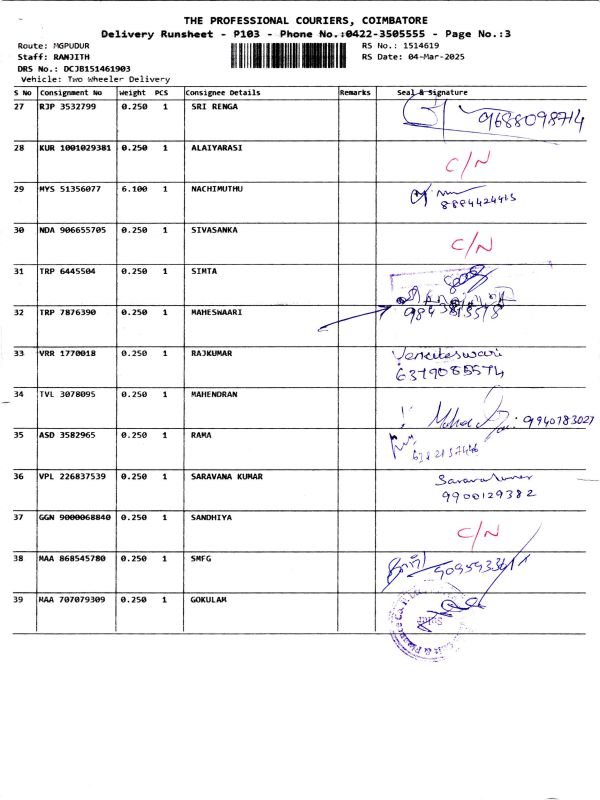 THE PROFESSIONAL COURIERS, COIMBATORE
Delivery Runsheet - P103 - Phone No.:0422-3505555 - Page No.:3
Route: MGPUDUR RS No.: 1514619
Staff: RANJITH RS Date: 04-Mar-2025
DRS No.: DCJB151461903
Vehicle: Two Wheeler Delivery
S No Consignment No Weight PCS Consignee Details Remarks Seal & Signature
27 RJP 3532799 0.250 1 SRI RENGA 9688098714
28 KUR 1001029381 0.250 1 ALAIYARASI C/N
29 MYS 51356077 6.100 1 NACHIMUTHU
30 NDA 906655705 0.250 1 SIVASANKA C/N
31 TRP 6445504 0.250 1 SIMTA
32 TRP 7876390 0.250 1 MAHESWAARI
33 VRR 1770018 0.250 1 RAJKUMAR Venkateswari
6379085574
34 TVL 3078095 0.250 1 MAHENDRAN 9940783027
35 ASD 3582965 0.250 1 RAMA
36 VPL 226837539 0.250 1 SARAVANA KUMAR Saravanakumar
9900129382
37 GGN 9000068840 0.250 1 SANDHIYA C/N
38 MAA 868545780 0.250 1 SMFG
39 MAA 707079309 0.250 1 GOKULAR